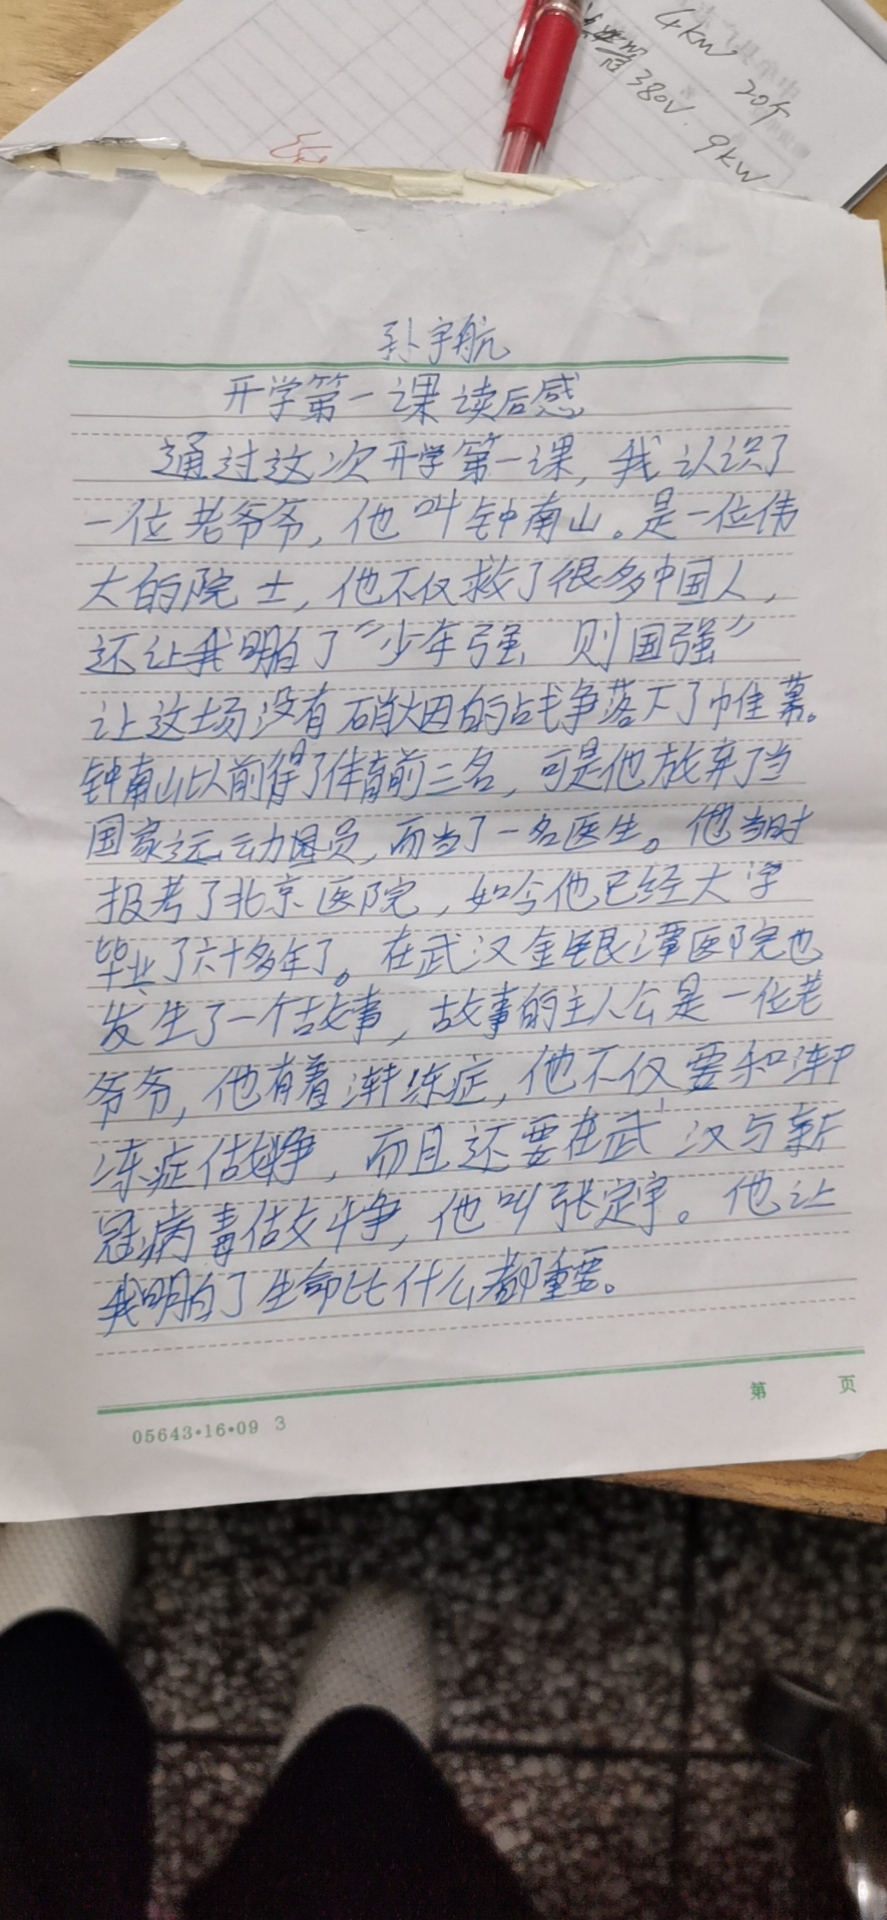 4KW 20个
380V. 9KW
孙宇航
开学第一课读后感
通过这次开学第一课,我认识了
一位老爷爷,他叫钟南山。是一位伟
大的院士,他不仅救了很多中国人,
还让我明白了“少年强 则国强”
让这场没有硝烟的战争落下了帷幕。
钟南山以前得了体育前三名,可是他放弃了当
国家运动员,而当了一名医生。他当时
报考了北京医院,如今他已经大学
毕业了六十多年了。在武汉金银潭医院也
发生了一个故事,故事的主人公是一位老
爷爷,他有着渐冻症,他不仅要和渐
冻症做争,而且还要在武汉与新
冠病毒做斗争,他叫张定宇。他让
我明白了生命比什么都重要。
第 页
05643•16•09 3